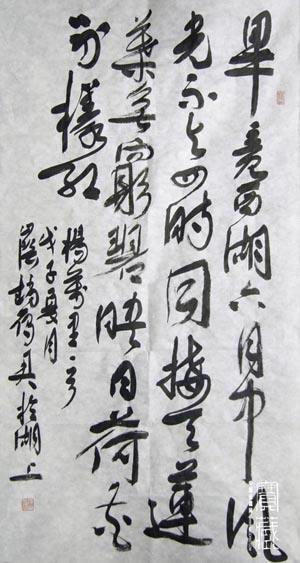 畢竟西湖六月中風
光不與四時同接天蓮
葉無窮碧映日荷花
別樣紅
楊萬里
戊子夏月
於湖上
寶藏